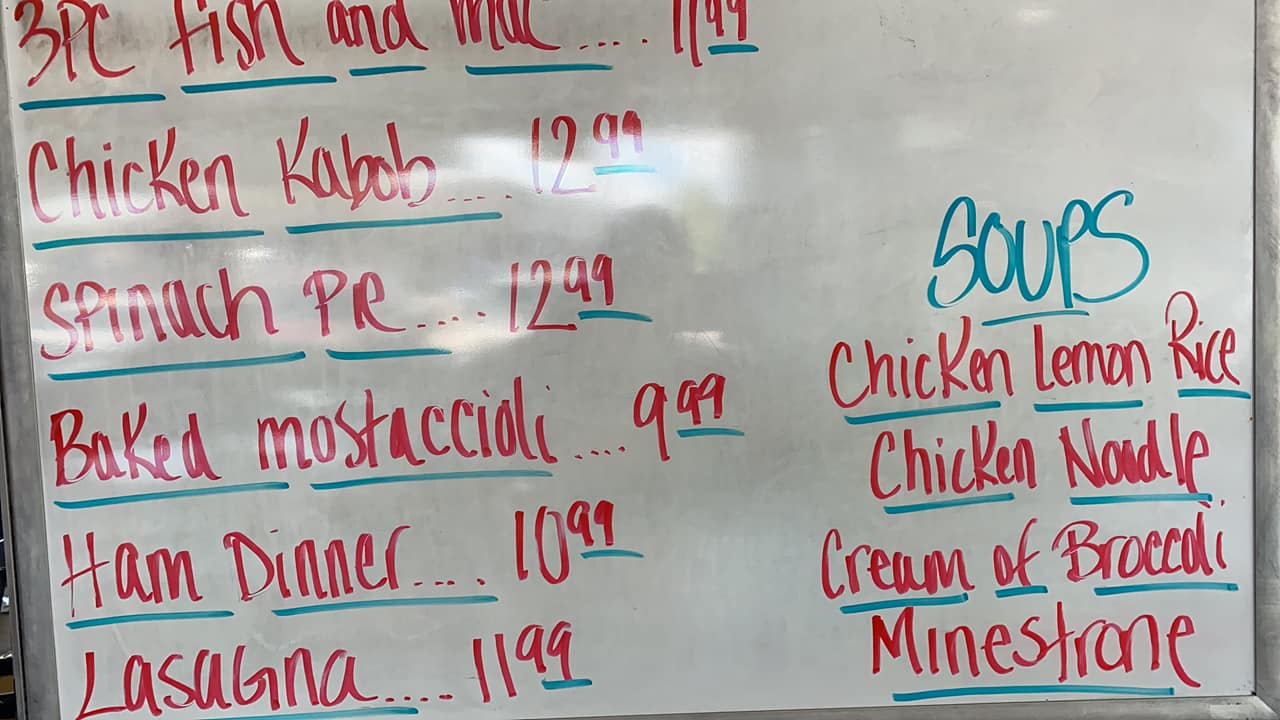 3PC fish and mac .... 11.99
Chicken Kabob .... 12.99
Spinach PIE .... 12.99
Baked mostaccioli .... 9.99
Ham Dinner .... 10.99
Lasagna .... 11.99
SOUPS
Chicken Lemon Rice
Chicken Noodle
Cream of Broccoli
Minestrone